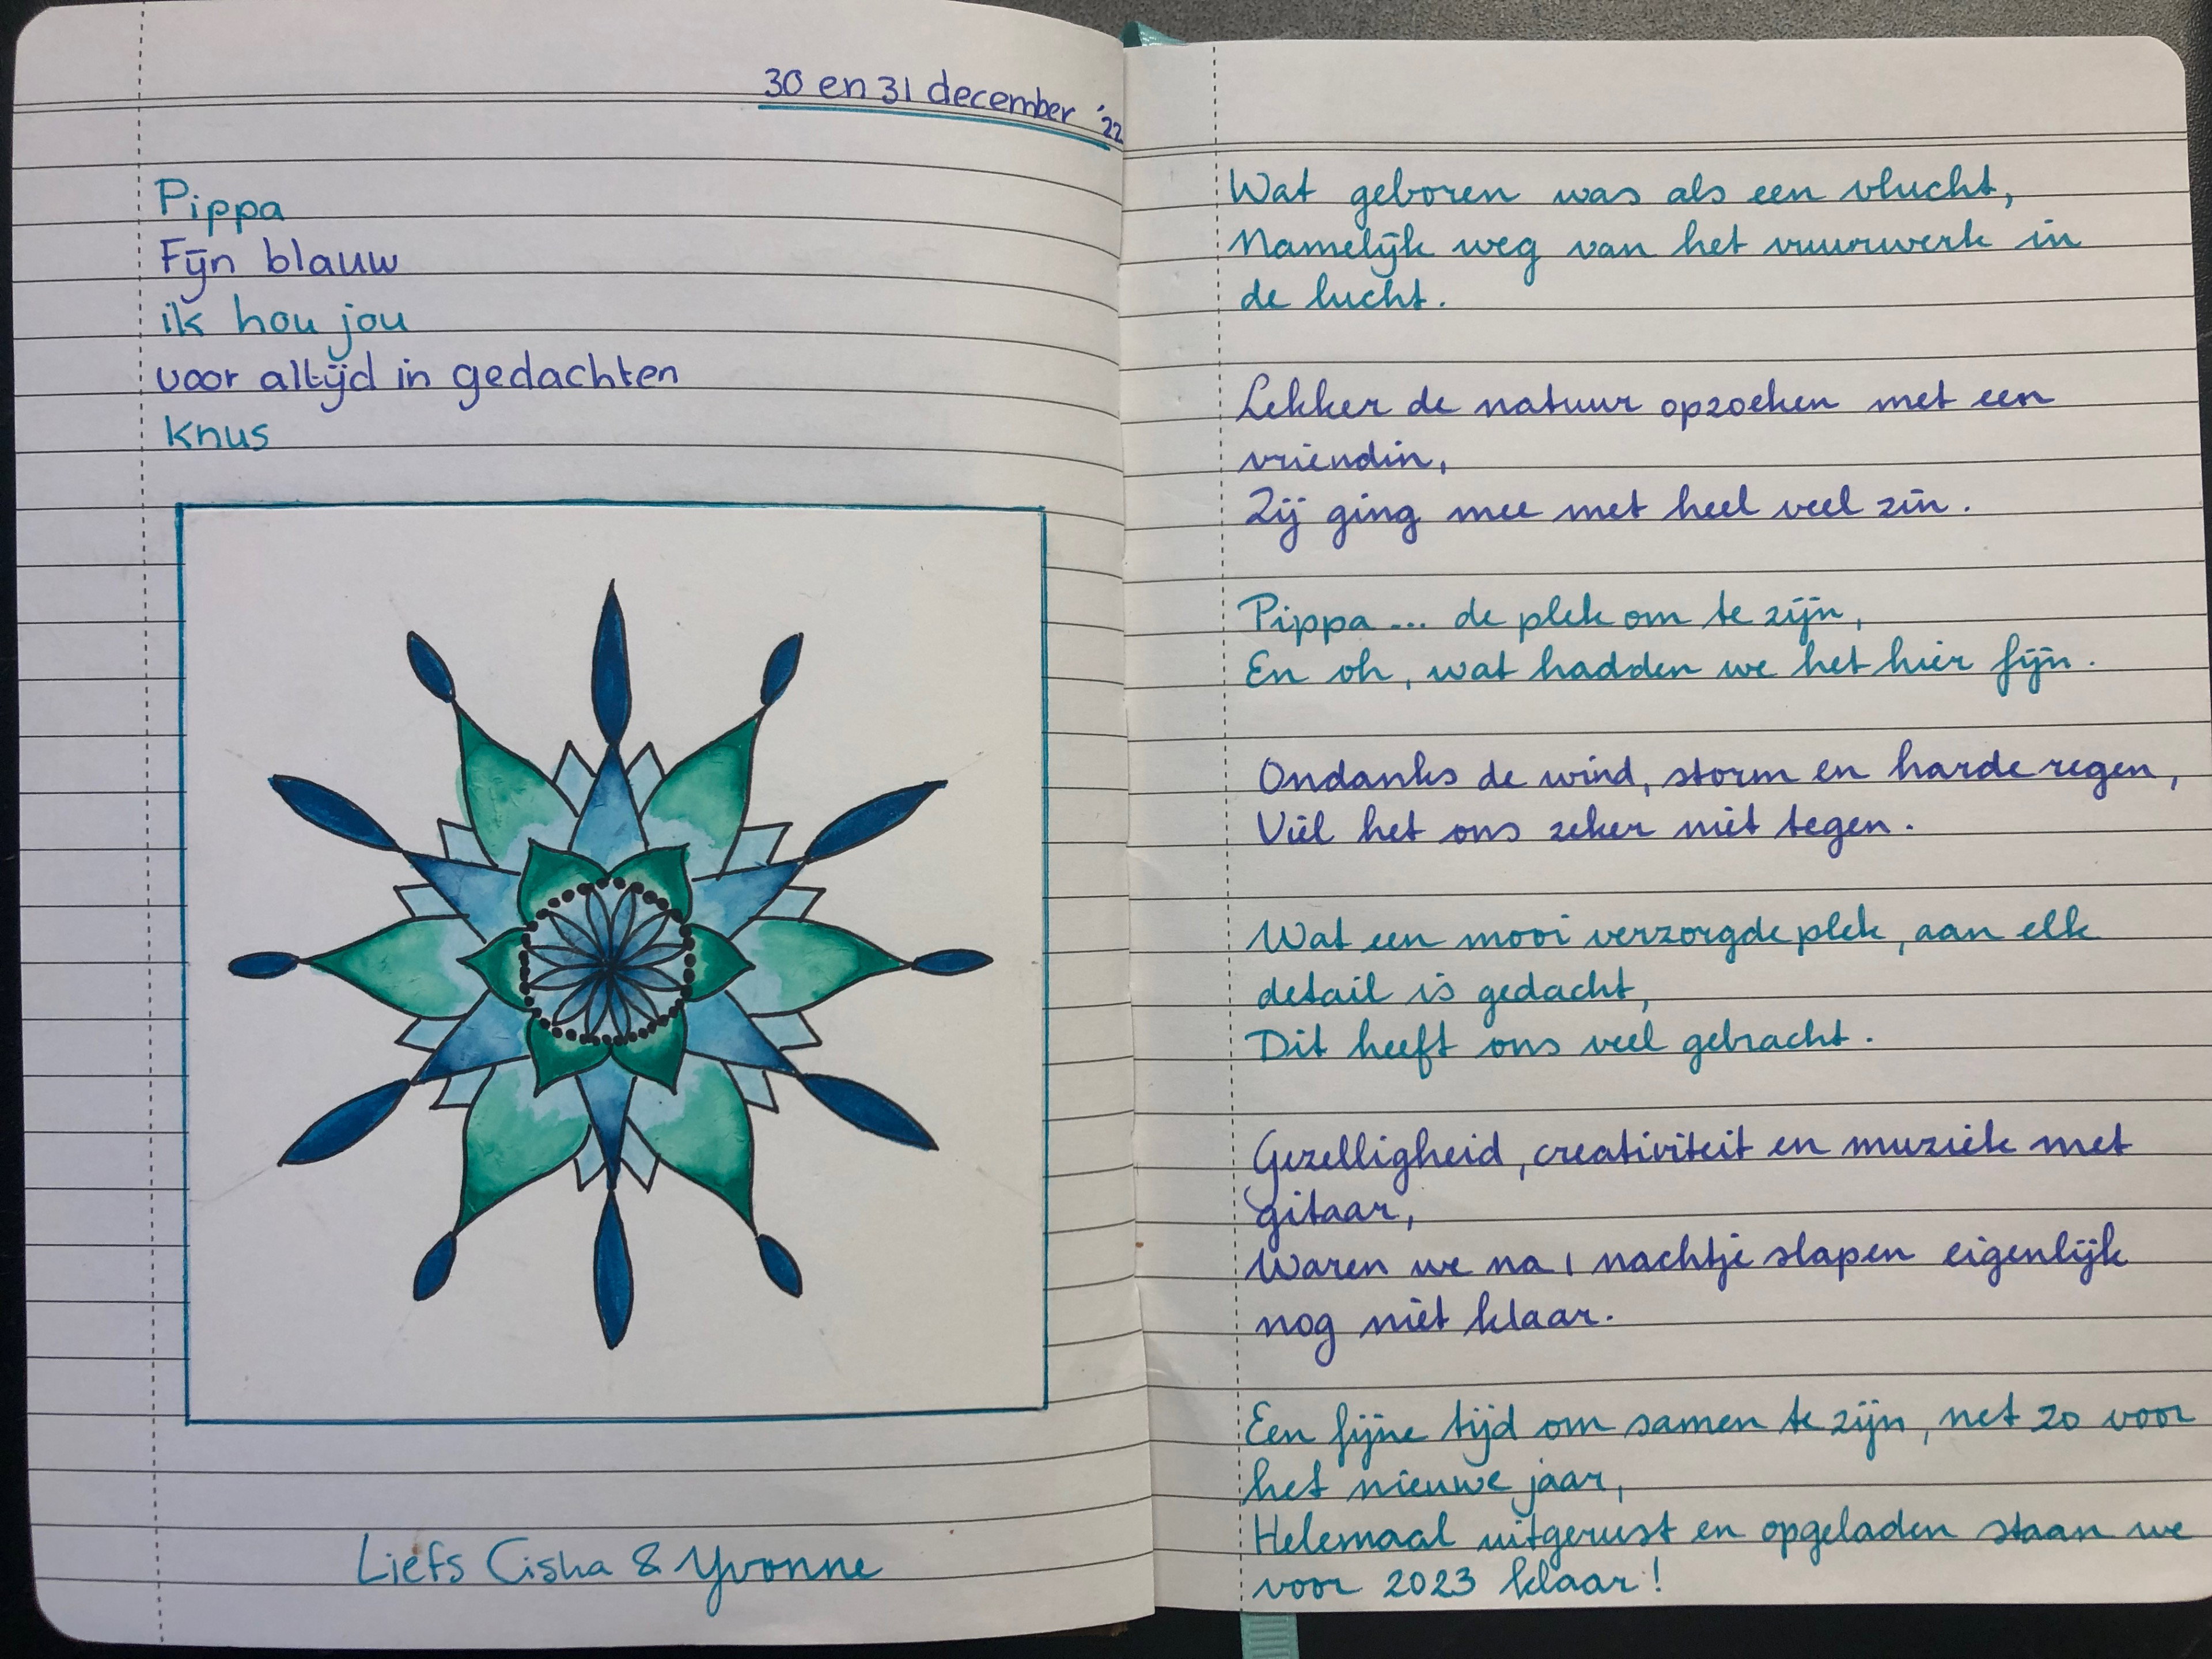 30 en 31 december '22
Pippa
Fijn blauw
ik hou jou
voor altijd in gedachten
knus
Liefs Cisha & Yvonne
Wat geboren was als een vlucht,
Namelijk weg van het vuurwerk in
de lucht.
Lekker de natuur opzoeken met een
vriendin,
Zij ging mee met heel veel zin.
Pippa... de plek om te zijn,
En oh, wat hadden we het hier fijn.
Ondanks de wind, storm en harde regen,
Viel het ons zeker niet tegen.
Wat een mooi verzorgde plek, aan elk
detail is gedacht,
Dit heeft ons veel gebracht.
Gezelligheid, creativiteit en muziek met
gitaar,
Waren we na 1 nachtje slapen eigenlijk
nog niet klaar.
Een fijne tijd om samen te zijn, net zo voor
het nieuwe jaar,
Helemaal uitgerust en opgeladen staan we
voor 2023 klaar!